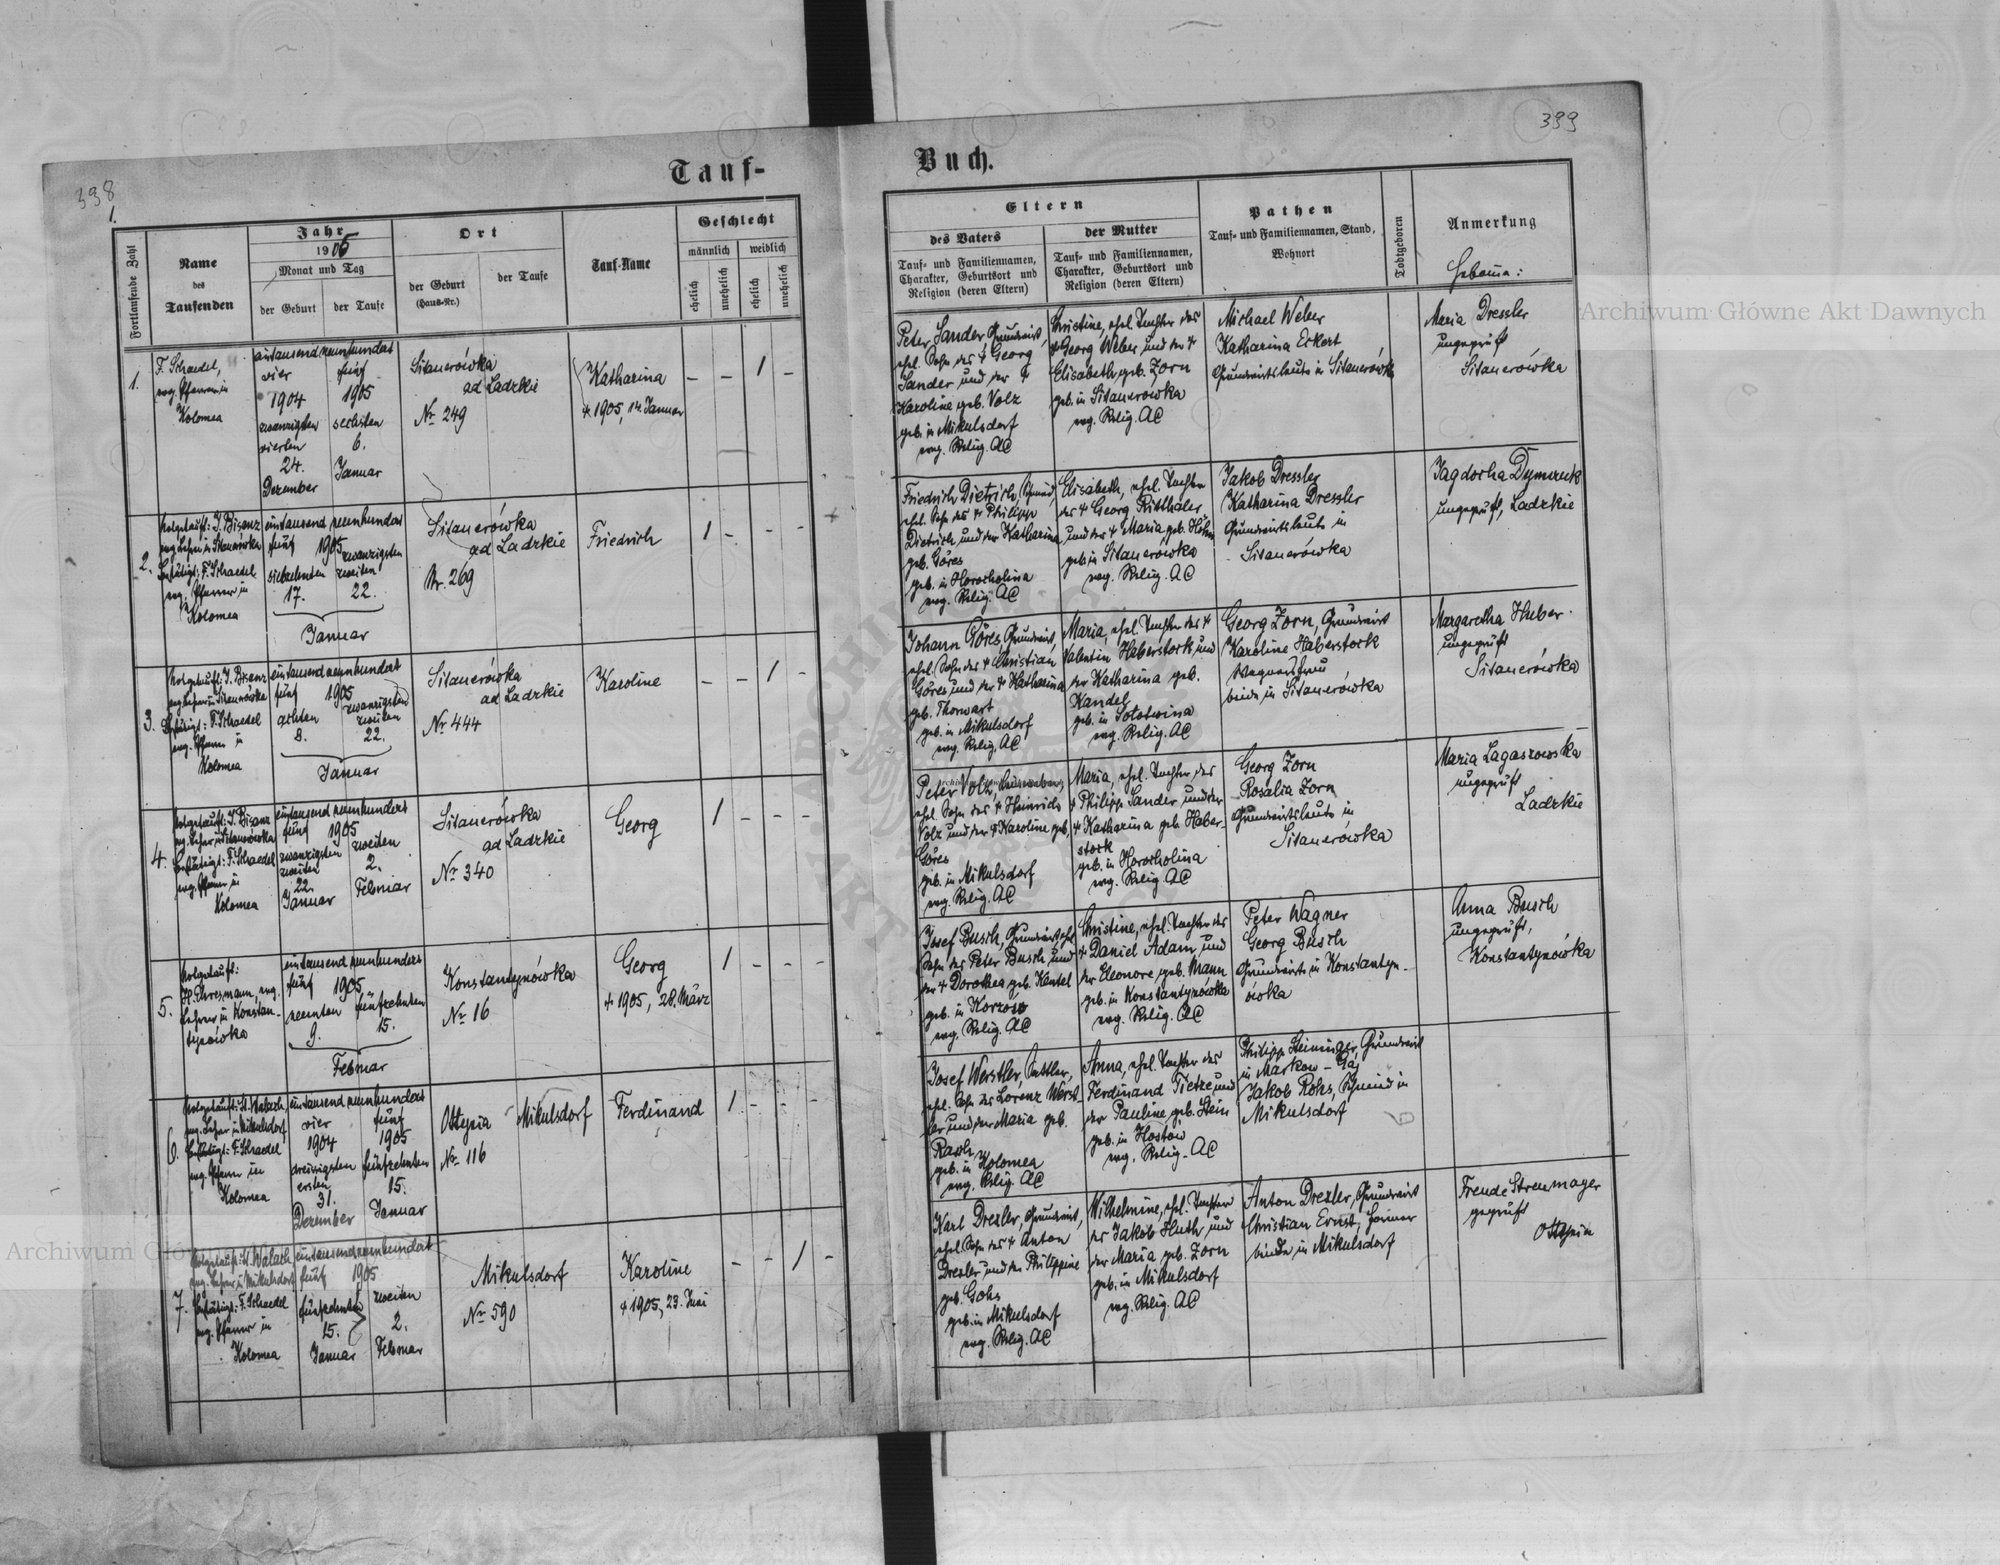 398
1.
Tauf-
Fortlaufende Zahl
Name
des
Taufenden
Jahr
1905
Monat und Tag
der Geburt
der Taufe
Ort
der Geburt
(Haus-Nr.)
der Taufe
Tauf-Name
Geschlecht
männlich
weiblich
ehelich
unehelich
ehelich
unehelich
1.
F. Schaedel,
evg. Pfarrer in
Kolomea
eintausend neunhundert
vier
fünf
1904
1905
zwanzigsten
sechsten
vierten
6.
24.
Januar
Dezember
Sitauerówka
ad Ladzkie
Nr. 249
Katharina
+ 1905, 14. Januar
– – 1 –
2.
Notgetauft: J. Bisanz
evg. Lehrer in Sitauerówka
Bestätigt: F. Schaedel
evg. Pfarrer in
Kolomea
eintausend neunhundert
fünf 1905
zwanzigsten
siebzehnten zweiten
17. 22.
Januar
Sitauerówka
ad Ladzkie
Nr. 269
Friedrich
1 – – –
3.
Notgetauft: J. Bisanz
evg. Lehrer in Sitauerówka
Bestätigt: F. Schaedel
evg. Pfarrer in
Kolomea
eintausend neunhundert
fünf 1905
zwanzigsten
achten zweiten
8. 22.
Januar
Sitauerówka
ad Ladzkie
Nr 444
Karoline
– – 1 –
4.
Notgetauft: J. Bisanz
evg. Lehrer in Sitauerówka
Bestätigt: F. Schaedel
evg. Pfarrer in
Kolomea
eintausend neunhundert
fünf 1905
zwanzigsten zweiten
zweiten 2.
22. Februar
Januar
Sitauerówka
ad Ladzkie
Nr 340
Georg
1 – – –
5.
Notgetauft:
H. Ehresmann, evg.
Lehrer in Konstan-
tynówka
eintausend neunhundert
fünf 1905
neunten fünfzehnten
9. 15.
Februar
Konstantynówka
Nr 16
Georg
+ 1905, 28. März
1 – – –
6.
Notgetauft: H. Walach,
evg. Lehrer in Mikulsdorf
Bestätigt: F. Schaedel
evg. Pfarrer in
Kolomea
eintausend neunhundert
vier fünf
1904 1905
dreissigsten fünfzehnten
ersten 15.
31. Januar
Dezember
Ottynia
Nr. 116
Mikulsdorf
Ferdinand
1 – – –
7.
Notgetauft: H. Walach
evg. Lehrer in Mikulsdorf
Bestätigt: F. Schaedel
evg. Pfarrer in
Kolomea
eintausend neunhundert
fünf 1905
fünfzehnten zweiten
15. 2.
Januar Februar
Mikulsdorf
Nr 590
Karoline
+ 1905, 23. Juni
– – 1 –
399
Buch.
Eltern
des Vaters
Tauf- und Familiennamen,
Charakter, Geburtsort und
Religion (deren Eltern)
der Mutter
Tauf- und Familiennamen,
Charakter, Geburtsort und
Religion (deren Eltern)
Pathen
Tauf- und Familiennamen, Stand,
Wohnort
Todtgeboren
Anmerkung
Peter Sander, Grundwirt,
ehel. Sohn des + Georg
Sander und der +
Karoline geb. Volz
geb. in Mikulsdorf
evg. Relig. AC
Christine, ehel. Tochter des
+ Georg Weber und der +
Elisabeth geb. Zorn
geb. in Sitauerówka
evg. Relig. AC
Michael Weber
Katharina Eckert
Grundwirtsleute in Sitauerówka
Maria Dressler
ungeprüft
Sitauerówka
Friedrich Dietrich, Schmied
ehel. Sohn des + Philipp
Dietrich und der Katharina
geb. Göres
geb. in Horocholina
evg. Relig. AC
Elisabeth, ehel. Tochter
des + Georg Ritthaler
und der + Maria geb. Höhn
geb. in Sitauerówka
evg. Relig. AC
Jakob Dressler
Katharina Dressler
Grundwirtsleute in
Sitauerówka
ungeprüft, Ladzkie
Johann Göres, Grundwirt,
ehel. Sohn des + Christian
Göres und der + Katharina
geb. Thorwart
geb. in Mikulsdorf
evg. Relig. AC
Maria, ehel. Tochter des +
Valentin Haberstock und
der Katharina geb.
Kandel
geb. in Sołotwina
evg. Relig. AC
Georg Zorn, Grundwirt
Karoline Haberstock
beide in Sitauerówka
Margaretha Huber
ungeprüft
Sitauerówka
Peter Volz,
ehel. Sohn des + Heinrich
Volz und der + Karoline geb.
Göres
geb. in Mikulsdorf
evg. Relig. AC
Maria, ehel. Tochter des
+ Philipp Sander und der
+ Katharina geb. Haber-
stock
geb. in Horocholina
evg. Relig. AC
Georg Zorn
Rosalia Zorn
Grundwirtsleute in
Sitauerówka
Maria Lagaszowska
ungeprüft
Ladzkie
Josef Busch, Grundwirt, ehel.
Sohn des Peter Busch und
der + Dorothea geb. Kentel
geb. in Korzów
evg. Relig. AC
Christine, ehel. Tochter des
+ Daniel Adam und
der Eleonore, geb. Mann
geb. in Konstantynówka
evg. Relig. AC
Peter Wagner
Georg Busch
Grundwirte in Konstantyn-
ówka
Anna Busch
ungeprüft,
Konstantynówka
Josef Werstler, Sattler,
ehel. Sohn des Lorenz Werst-
ler und der Maria geb.
geb. in Kolomea
evg. Relig. AC
Anna, ehel. Tochter des
Ferdinand Tietze und
der Pauline, geb. Stein
geb. in Hostów
evg. Relig. AC
Philipp Steininger, Grundwirt
in Markow-Gaj
Jakob Rohs, Schmied in
Mikulsdorf
Karl Drexler, Grundwirt,
ehel. Sohn des + Anton
Drexler und der Philippine
geb. Gohs
geb. in Mikulsdorf
evg. Relig. AC
Wilhelmine, ehel. Tochter
des Jakob Huth und
der Maria geb. Zorn
geb. in Mikulsdorf
evg. Relig. AC
Anton Drexler, Grundwirt
Christian Ernst,
beide in Mikulsdorf
Freude Strenmayer
geprüft
Ottynia
Archiwum Główne Akt Dawnych